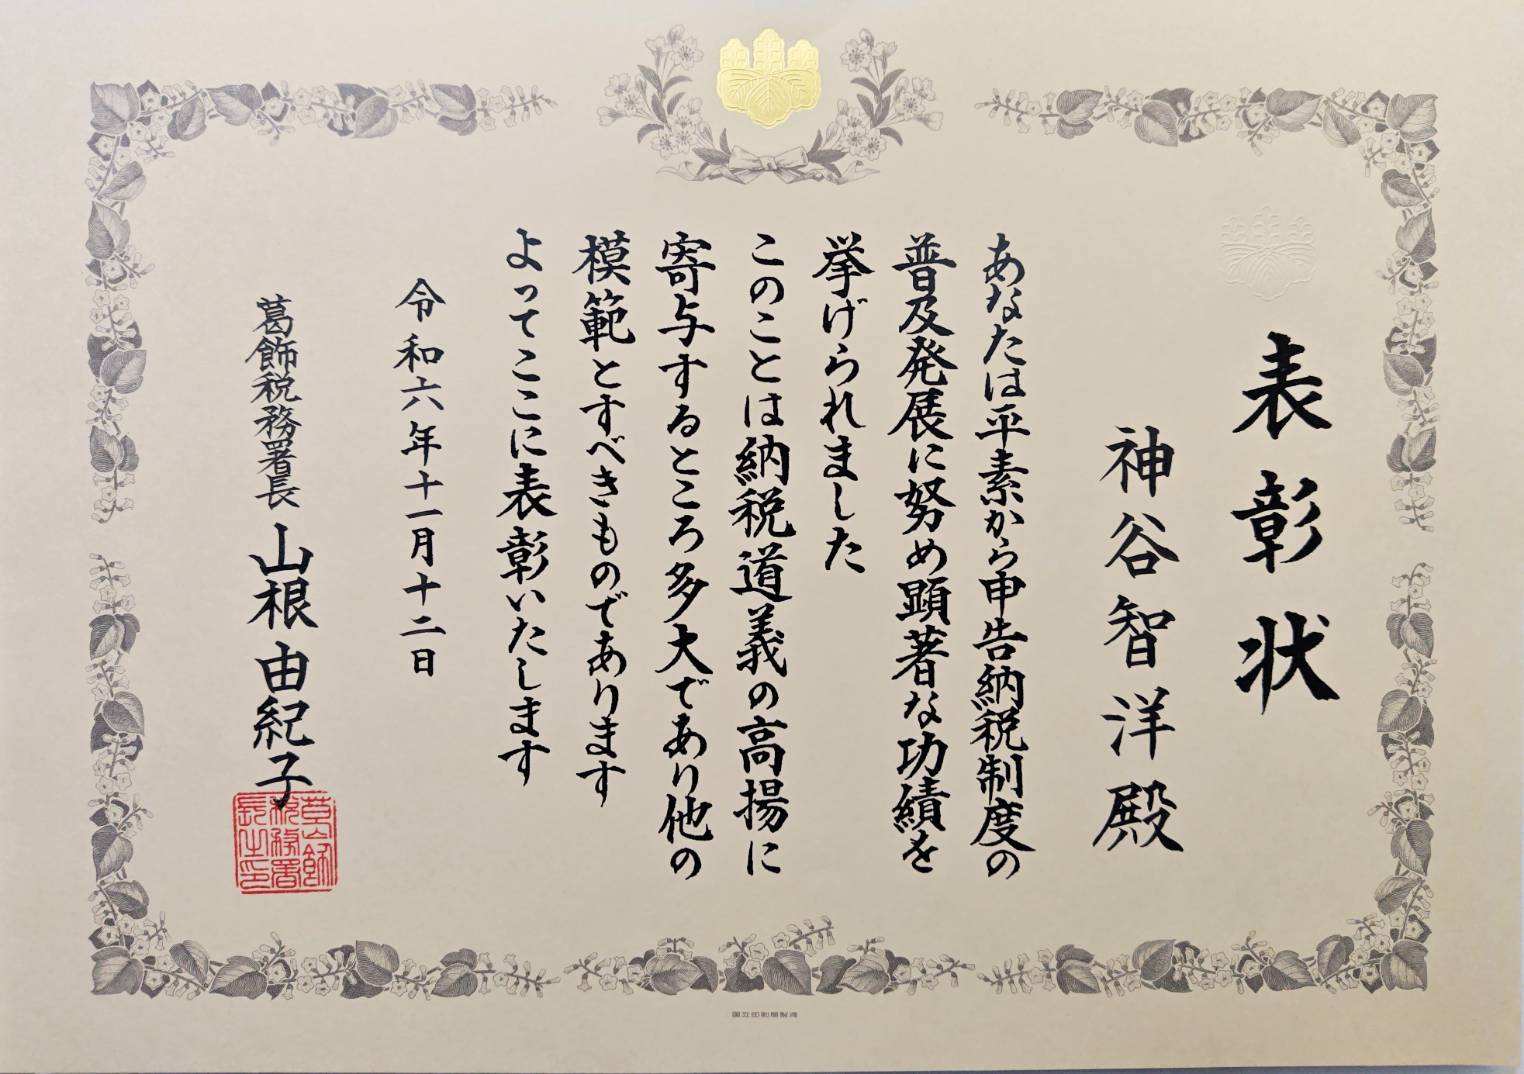 表彰状
神谷智洋殿
あなたは平素から申告納税制度の
普及発展に努め顕著な功績を
挙げられました
このことは納税道義の高揚に
寄与するところ多大であり他の
模範とすべきものであります
よってここに表彰いたします
令和六年十一月十二日
葛飾税務署長 山根由紀子
葛飾
税務署
長之印
国立印刷局製造